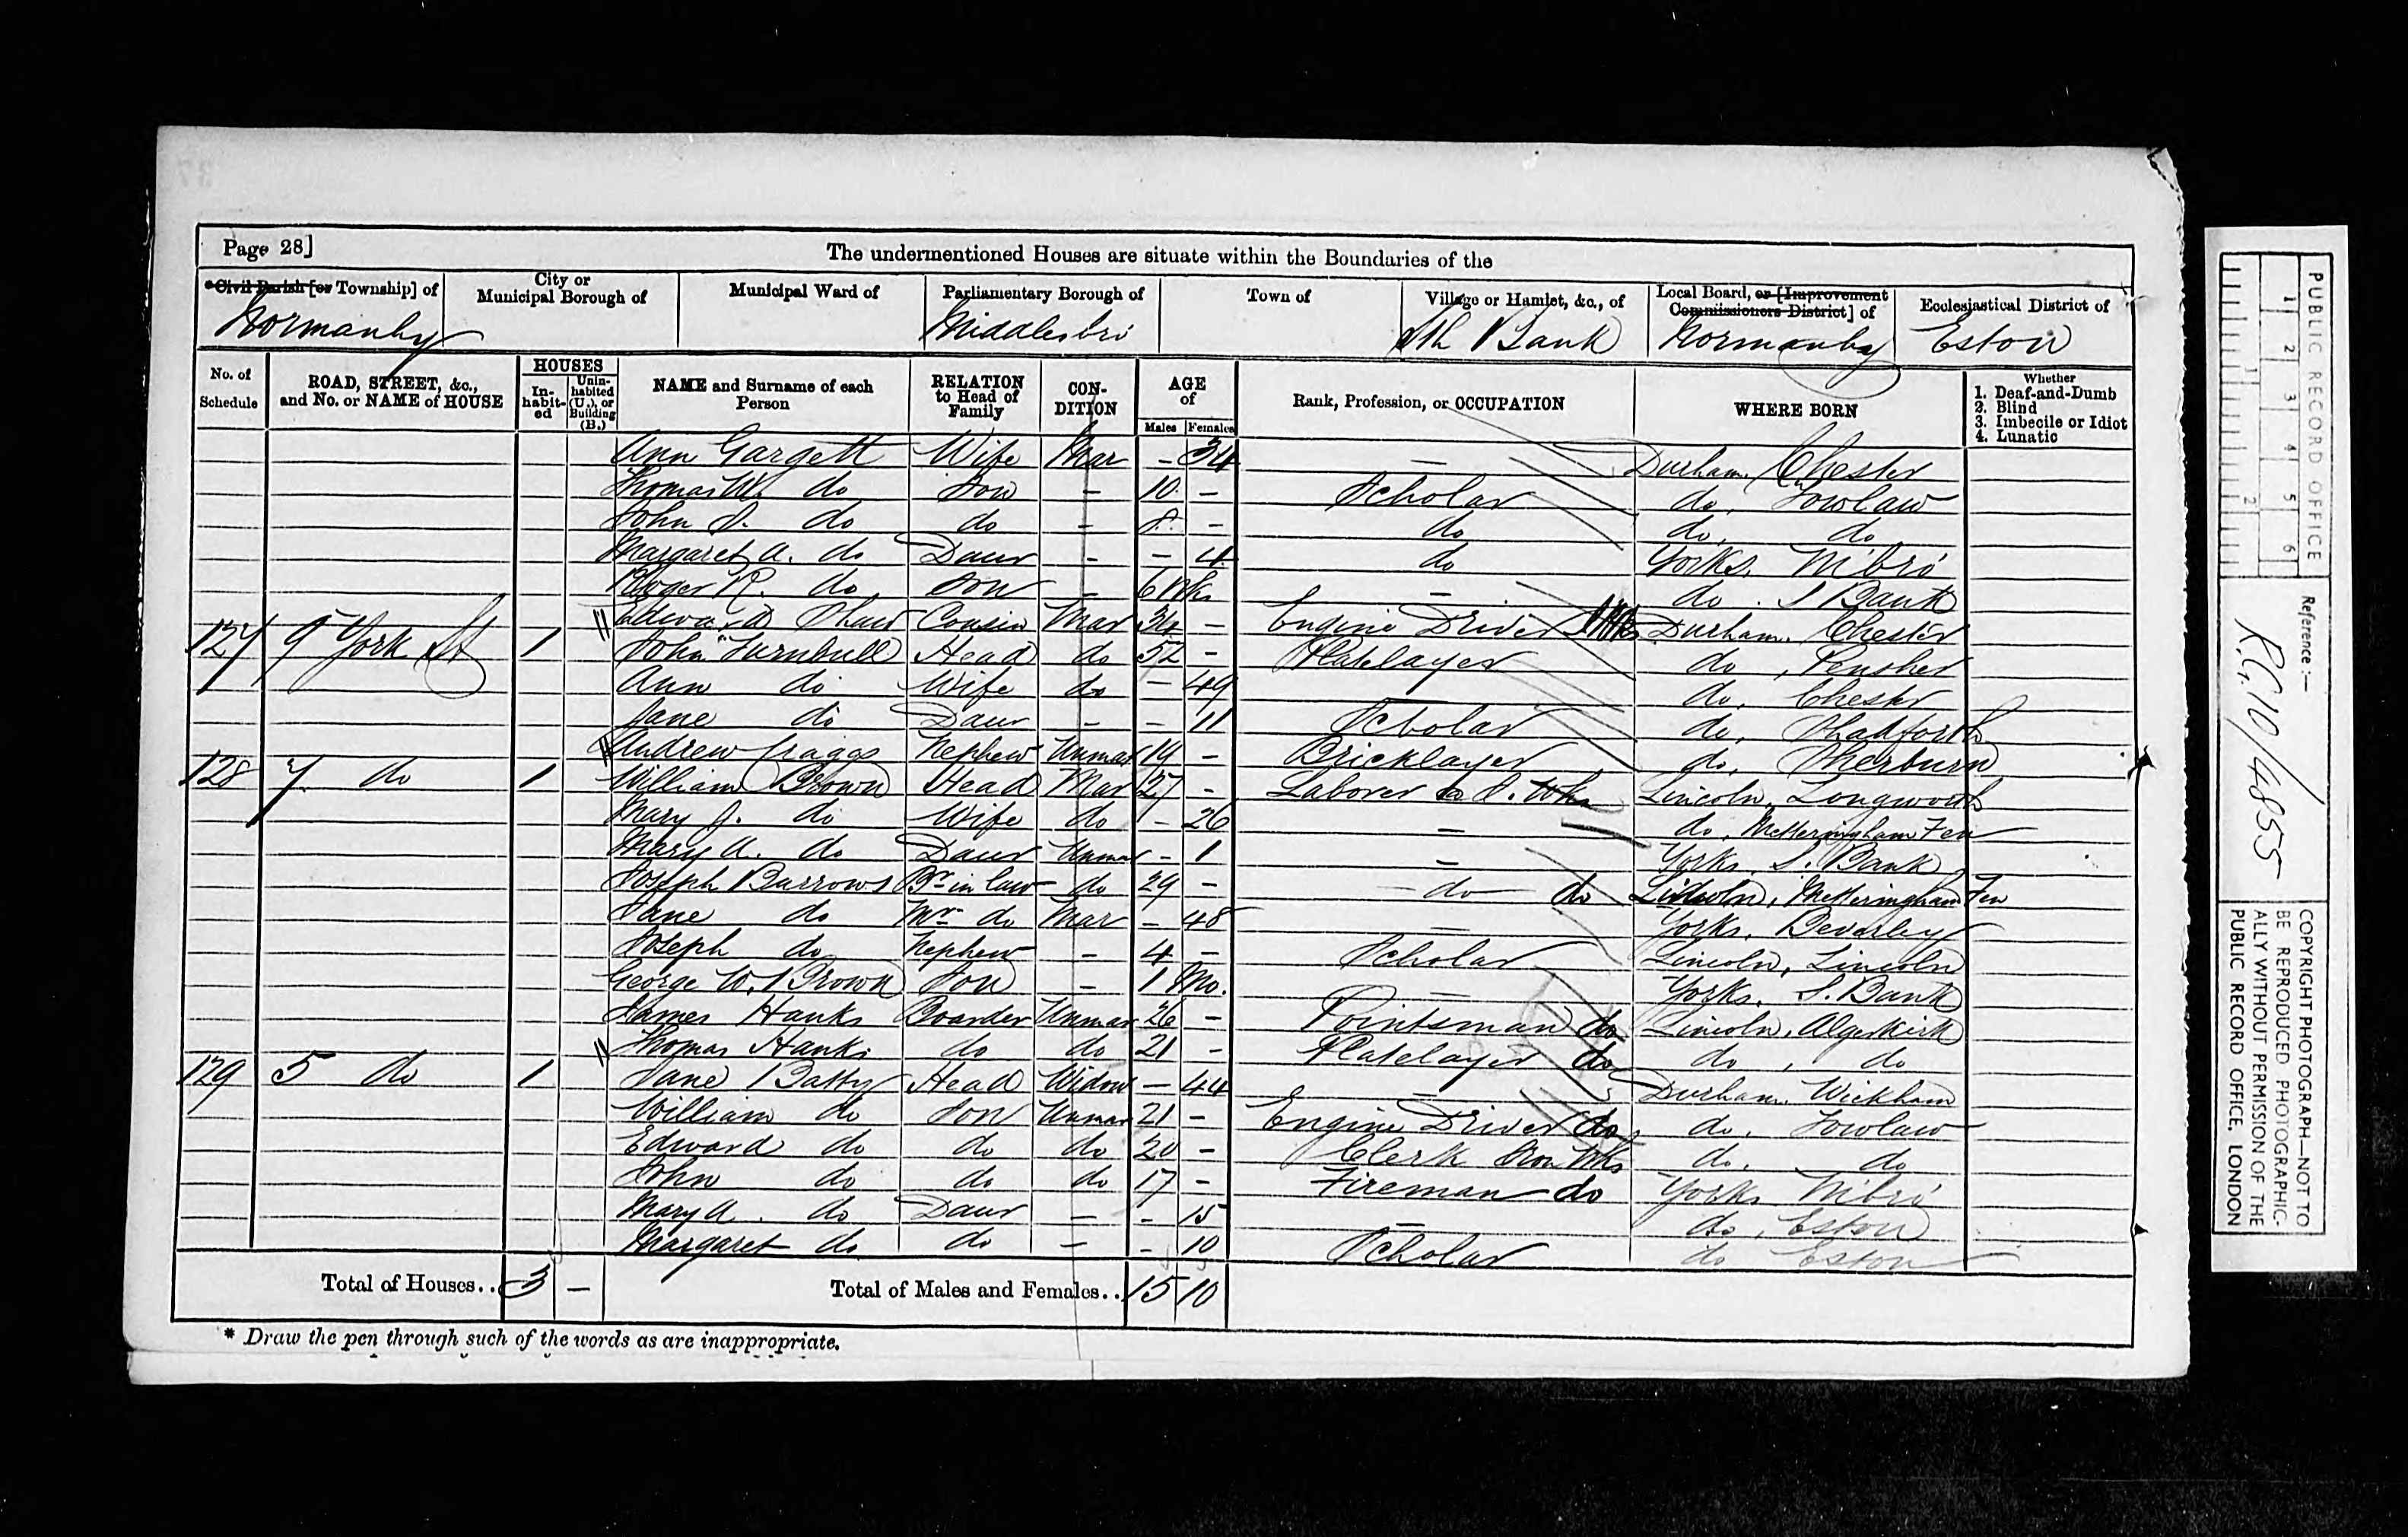 Page 28]
The undermentioned Houses are situate within the Boundaries of the
*Civil Parish [or Township] of
City or Municipal Borough of
Municipal Ward of
Parliamentary Borough of
Town of
Village or Hamlet, &c., of
Local Board, or [Improvement Commissioners District] of
Ecclesiastical District of
Normanby Middlesbro' Sth Bank Normanby Eston
No. of Schedule
ROAD, STREET, &c., and No. or NAME of HOUSE
HOUSES
In-habit-ed
Unin-habited (U.), or Building (B.)
NAME and Surname of each Person
RELATION to Head of Family
CON-DITION
AGE of
Males Females
Rank, Profession, or OCCUPATION
WHERE BORN
Whether
1. Deaf-and-Dumb
2. Blind
3. Imbecile or Idiot
4. Lunatic
Ann Gargett Wife Mar - 34 - Durham, Chester
Thomas W. do Son - 10 - Scholar do, Towlaw
John S. do do - 8 - do do, do
Margaret A. do Daur - - 4 do Yorks, M'bro'
Roger R. do Son - 6 Wks - do. S Bank
Edward Shaw Cousin Mar 34 - Engine Driver Durham, Chester
127 9 York St 1 John Turnbull Head do 52 - Platelayer do, Pensher
Ann do Wife do - 49 - do, Chester
Jane do Daur - - 11 Scholar do, Shadforth
Andrew Craggs Nephew Unmar 19 - Bricklayer do, Sherburn
128 7 do 1 William Brown Head Mar 27 - Laborer I. Wks Lincoln, Longworth
Mary J. do Wife do - 26 - do, Metheringham Fen
Mary A. do Daur Unmar - 1 - Yorks, S. Bank
Joseph Burrows Br in law do 29 - do do Lincoln, Metheringham Fen
Jane do Mr do Mar - 48 - Yorks, Beverley
Joseph do Nephew - 4 - Scholar Lincoln, Lincoln
George W. Brown Son - 1 Mo. - Yorks, S. Bank
James Hanks Boarder Unmar 26 - Pointsman do Lincoln, Algarkirk
Thomas Hanks do do 21 - Platelayer do do, do
129 5 do 1 Jane Batty Head Widow - 44 - Durham, Wickham
William do Son Unmar 21 - Engine Driver do do, Towlaw
Edward do do do 20 - Clerk Iron Wks do, do
John do do do 17 - Fireman do Yorks M'bro'
Mary A. do Daur - - 15 - do, Eston
Margaret do do - - 10 Scholar do Eston
Total of Houses.. 3 - Total of Males and Females.. 15 10
* Draw the pen through such of the words as are inappropriate.
PUBLIC RECORD OFFICE
1 2 3 4 5 6
1 2
Reference :-
R.G. 10/4855
COPYRIGHT PHOTOGRAPH—NOT TO
BE REPRODUCED PHOTOGRAPHIC-
ALLY WITHOUT PERMISSION OF THE
PUBLIC RECORD OFFICE, LONDON